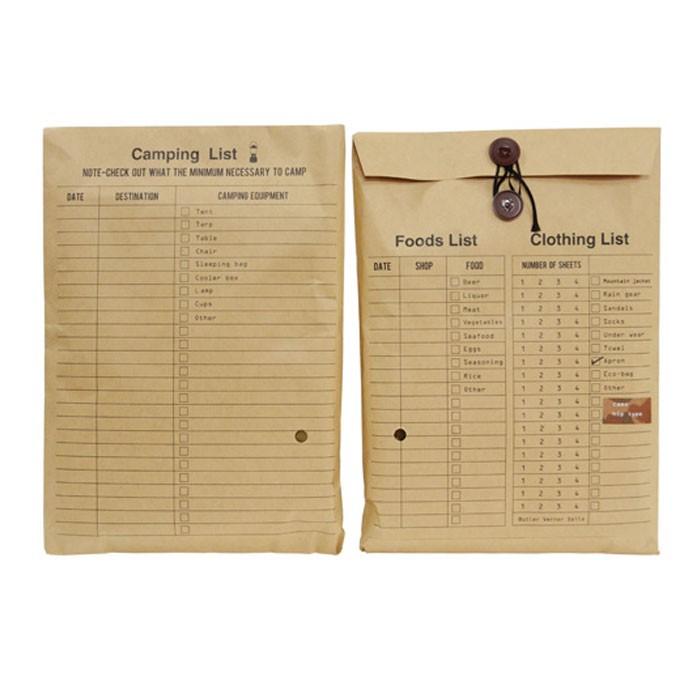 Camping List
NOTE-CHECK OUT WHAT THE MINIMUM NECESSARY TO CAMP
DATE DESTINATION CAMPING EQUIPMENT
Tent
Tarp
Table
Chair
Sleeping bag
Cooler box
Lamp
Cups
Other
Foods List
DATE SHOP FOOD
Beer
Liquor
Meat
Vegetables
Seafood
Eggs
Seasoning
Rice
Other
Clothing List
NUMBER OF SHEETS
1 2 3 4 Mountain jacket
1 2 3 4 Rain gear
1 2 3 4 Sandals
1 2 3 4 Socks
1 2 3 4 Under wear
1 2 3 4 Towel
1 2 3 4 Apron
1 2 3 4 Eco-bag
1 2 3 4 Other
1 2 3 4
1 2 3 4
1 2 3 4
1 2 3 4
1 2 3 4
1 2 3 4
1 2 3 4
1 2 3 4
1 2 3 4
Camo
hip type
Butler Verner Sails